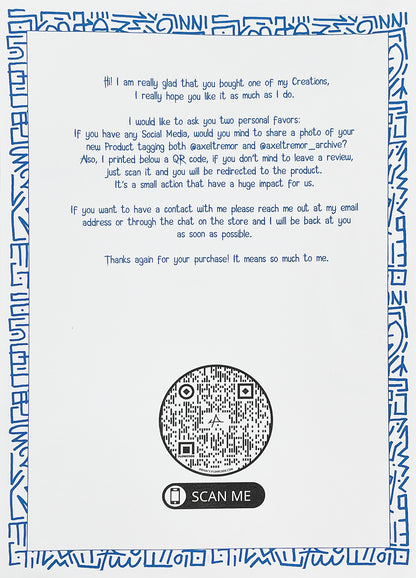 Hi! I am really glad that you bought one of my Creations,
I really hope you like it as much as I do.
I would like to ask you two personal favors:
If you have any Social Media, would you mind to share a photo of your
new Product tagging both @axeltremor and @axeltremor_archive?
Also, I printed below a QR code, if you don't mind to leave a review,
just scan it and you will be redirected to the product.
It's a small action that have a huge impact for us.
If you want to have a contact with me please reach me out at my email
address or through the chat on the store and I will be back at you
as soon as possible.
Thanks again for your purchase! It means so much to me.
SCAN ME